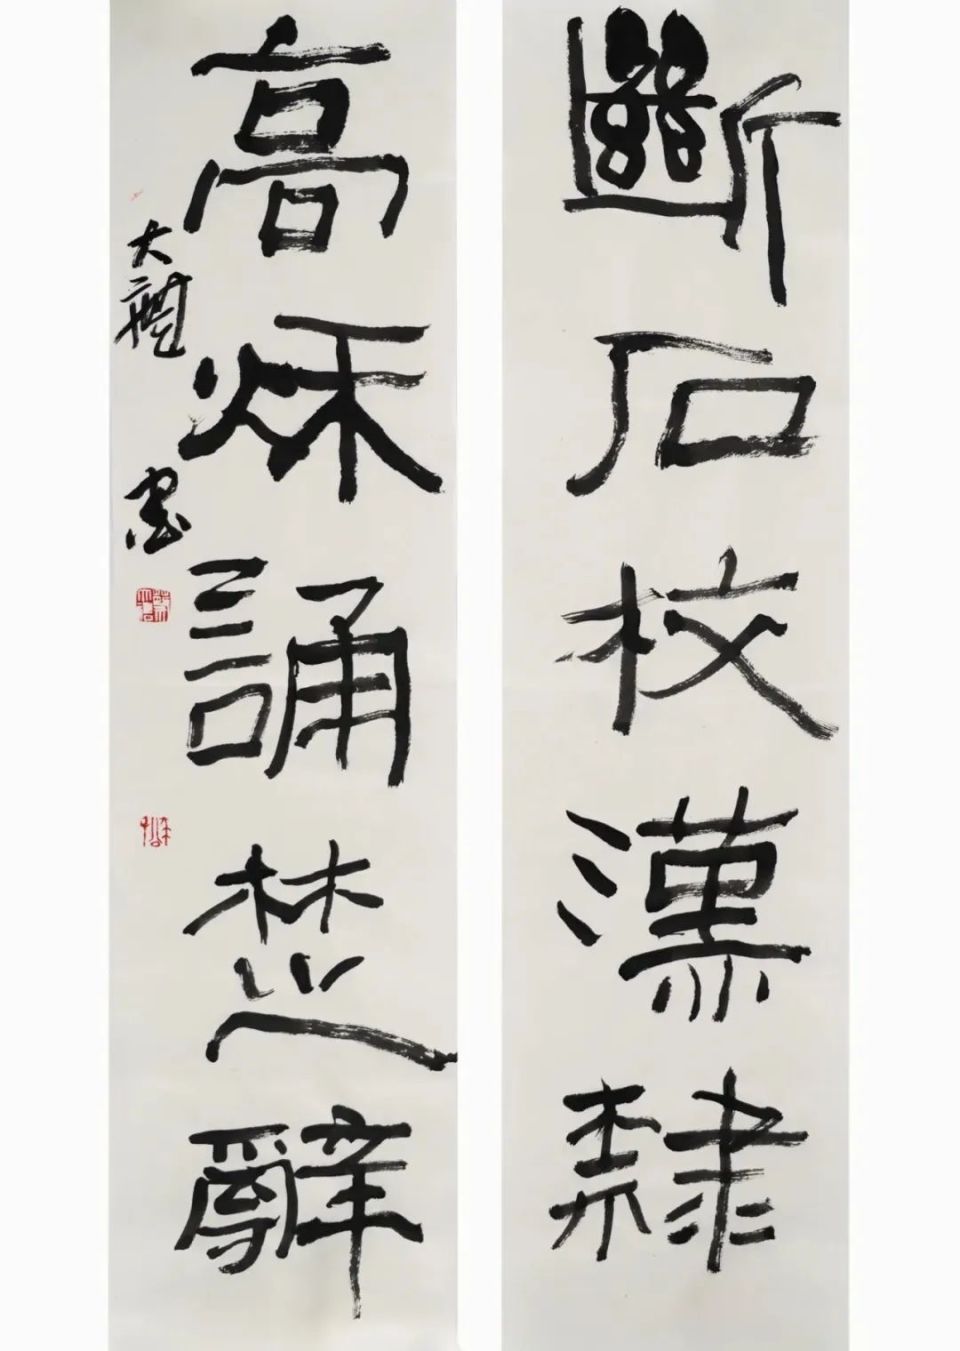 斷石校漢隸
高秌誦楚辭
大 書